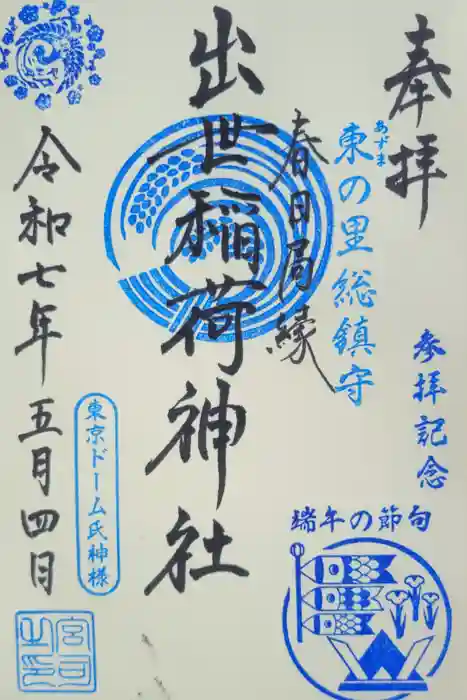 奉拝
参拝記念
東の里総鎮守
あずま
春日局縁
出世稲荷神社
令和七年五月四日
東京ドーム氏神様
端午の節句